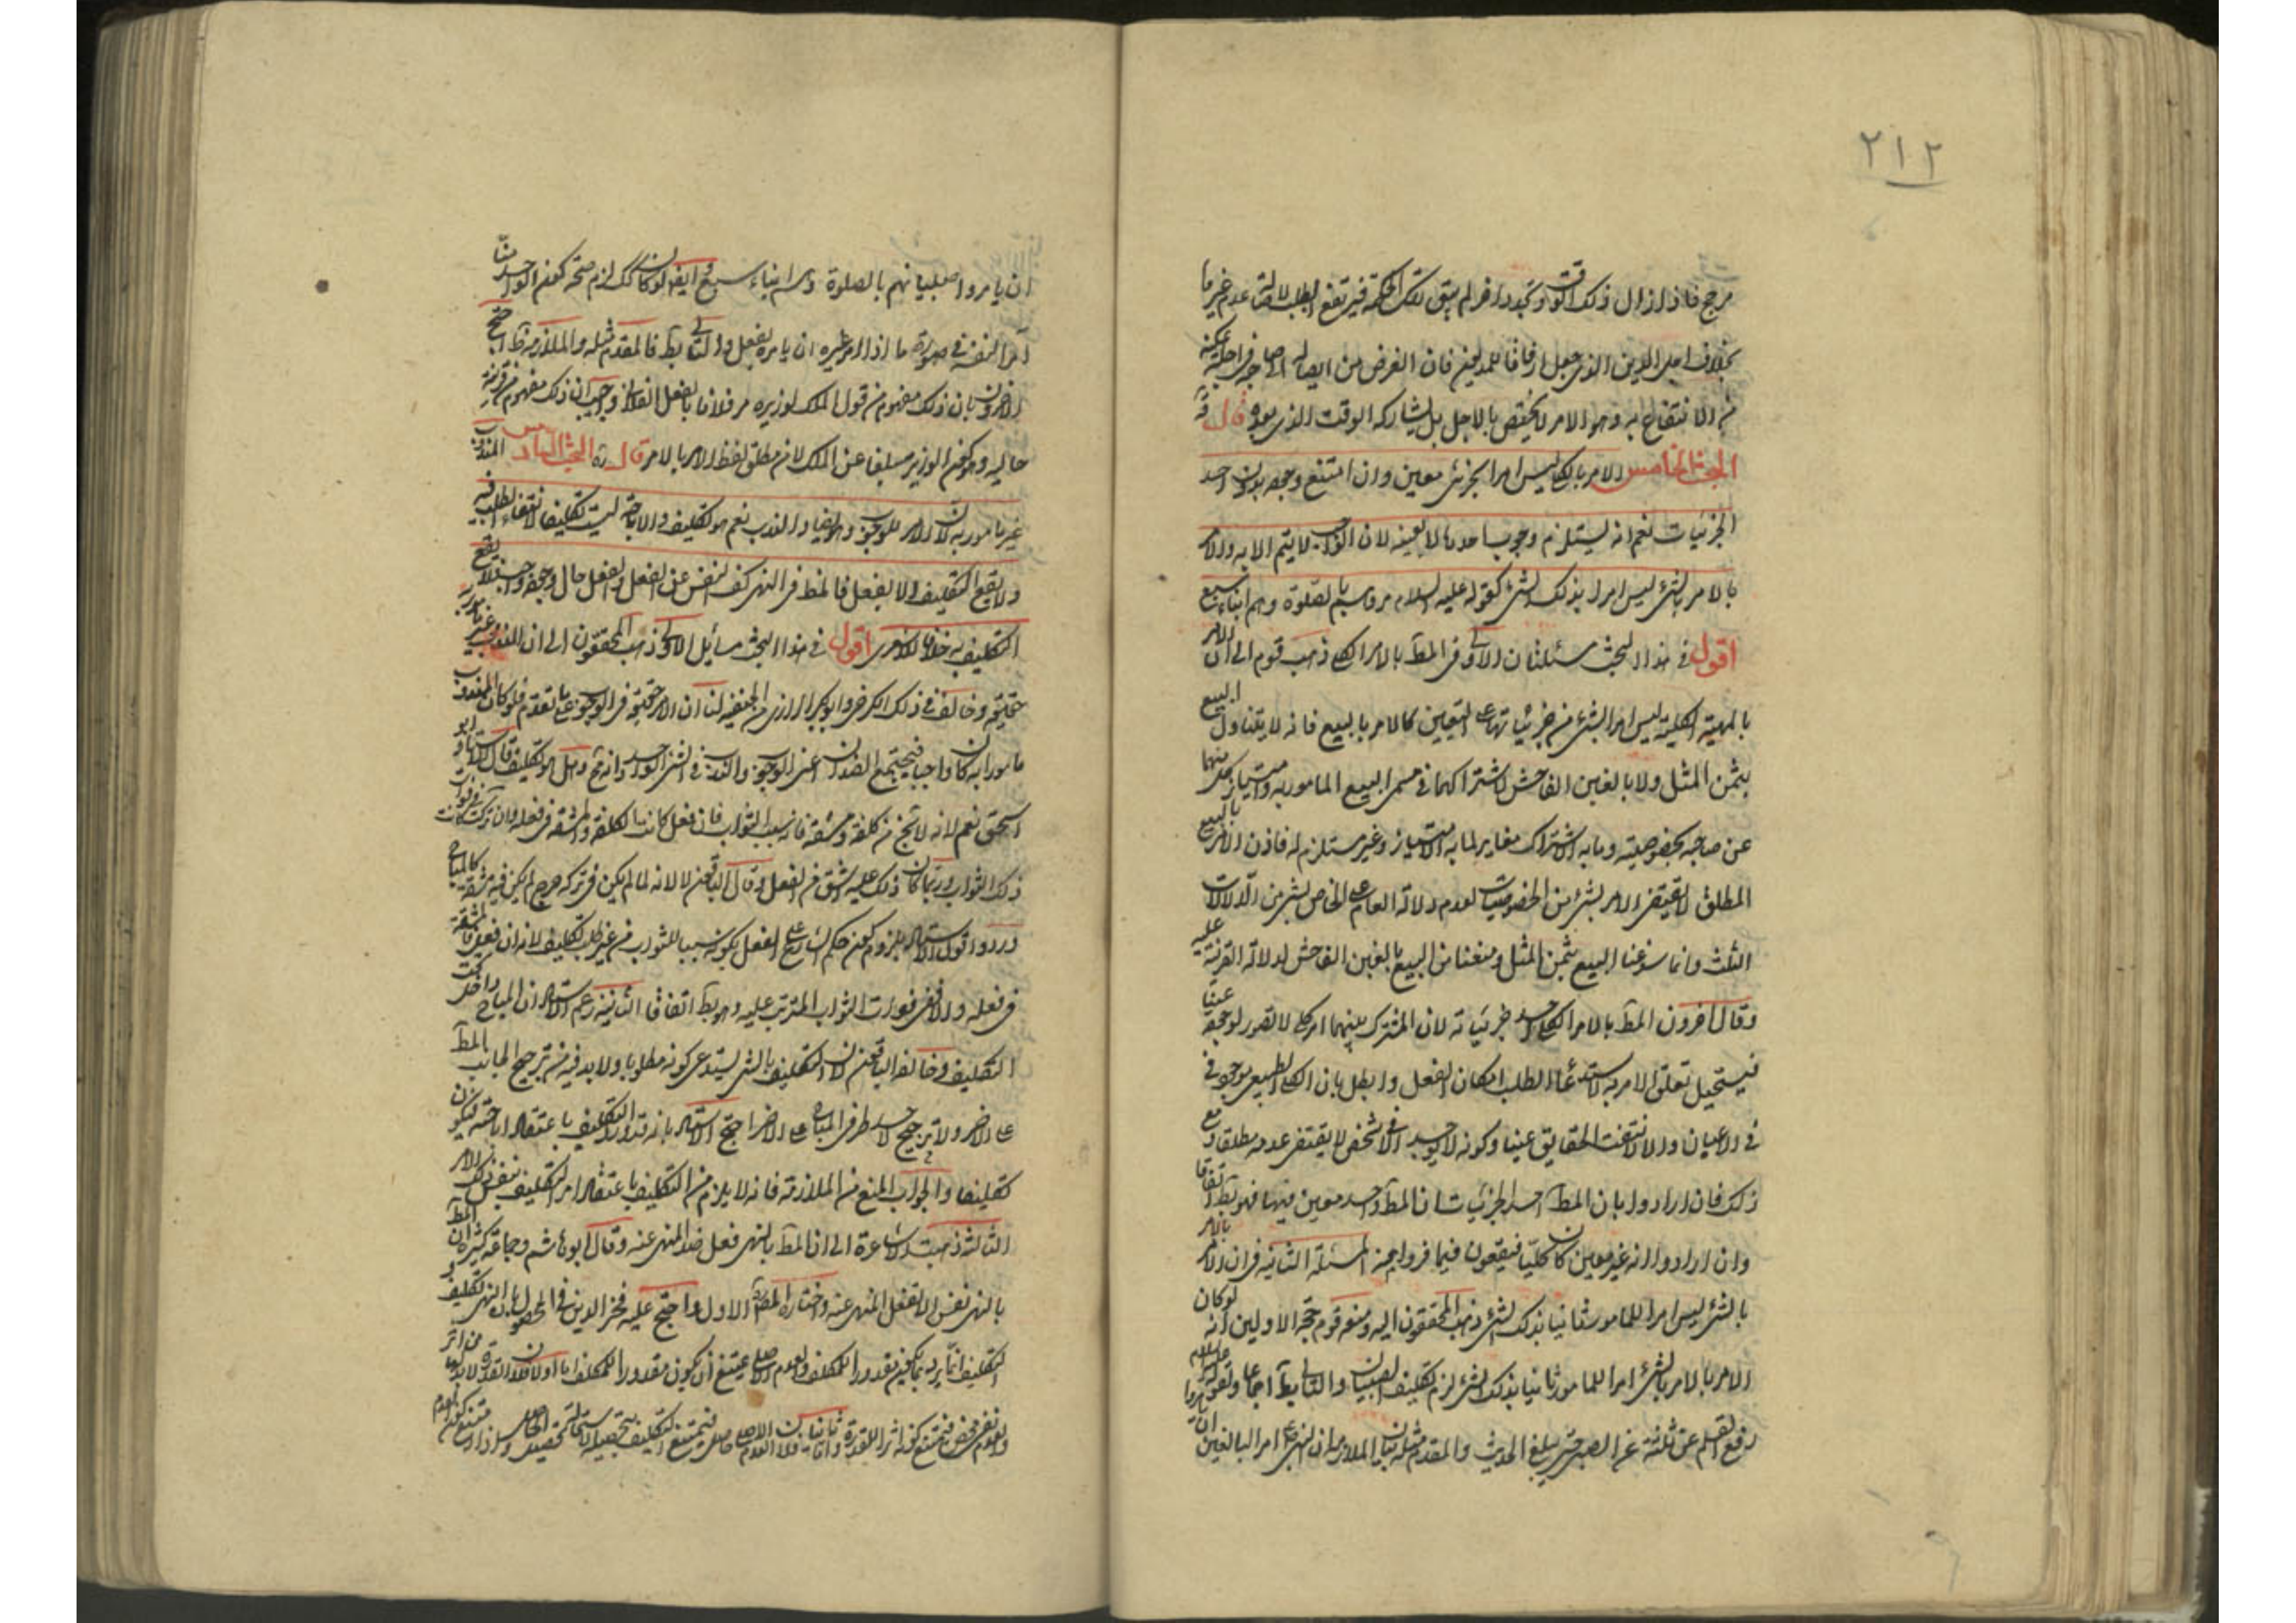 ٢١٢
مرجح فاذا زال ذلك الوقت وتجدد اخر لم يبق تلك الحكمة فيرتفع الطلب لاصالة عدم غيرها
بخلاف اجل الدين الذي جعل ارفاقا للمديون فان الغرض من ايصاله الى صاحبه في اجله تمكنه
من الانتفاع به وهو الامر لا يختص بالاجل بل يشاركه الوقت الذي بعده قال
البحث الخامس الامر بالكلي ليس امرا بجزئي معين وان امتنع وجوده بدون احد
الجزئيات نعم انه يستلزم وجوب احدها لا بعينه لان الواجب لا يتم الا به والامر
بالامر بالشيء ليس امرا بذلك الشيء كقوله عليه السلام مروهم بالصلوة وهم ابناء سبع
اقول في هذا البحث مسئلتان الاولى في المط بالامر الكلي ذهب قوم الى ان الامر
بالمهية الكلية ليس امرا بشيء من جزئياتها على التعيين كالامر بالبيع فانه لا يتناول البيع
بثمن المثل ولا بالغبن الفاحش لاشتراكهما في مسمى البيع المامور به وامتياز كل منهما
عن صاحبه بخصوصيته وما به الاشتراك مغاير لما به الامتياز وغير مستلزم له فاذن الامر بالبيع
المطلق لا يقتضي الامر بشيء من الخصوصيات لعدم دلالة العام على الخاص بشيء من الدلالات
الثلث وانما سوغنا البيع بثمن المثل ومنعنا من البيع بالغبن الفاحش لدلالة القرينة عليه
وقال اخرون المط بالامر الكلي احد جزئياته لان المشترك بينهما امر كلي لا تصور لوجوده عينا
فيستحيل تعلق الامر به لاستدعاء الطلب امكان الفعل وابطل بان الكلي الطبيعي موجود في
في الاعيان والا لانتفت الحقايق عينا وكونه لا يوجد الا في شخص لا يقتضي عدمه مطلقا ومع
ذلك فان ارادوا بان المط احد الجزئيات ان المط واحد معين منها فهو بط اتفاقا
وان ارادوا انه غير معين كان كليا فيقعون فيما فروا عنه المسئلة الثانية في ان الامر بالامر
بالشيء ليس امرا للمامور ثانيا بذلك الشيء ذهب المحققون اليه ومنعه قوم حجة الاولين انه لو كان
الامر بالامر بالشيء امرا للمامور ثانيا بذلك الشيء لزم تكليف الصبيان والتالي بط اجماعا ولقوله عليه السلام
رفع القلم عن ثلثة عن الصبي حتى يبلغ الحديث والمقدم مثله بيان الملازمة ان النبي ص امر البالغين ان يامروا
ان يامروا صبيانهم بالصلوة وهم ابناء سبع وايضا لو كان كك لزم صحة كون الواحد منا
امرا لنفسه في صورة ما اذا امر غيره ان يامره بفعل والتالي بط فالمقدم مثله والملازمة ظ احتج
الاخرون بان ذلك مفهوم من قول الملك لوزيره مر فلانا بالفعل الفلاني واجيب بان ذلك مفهوم من قرينة
حالية وهو كون الوزير مبلغا عن الملك لا من مطلق لفظ الامر بالامر قال ره البحث السادس المندوب
غير مامور به لان الامر للوجوب وهو ينافي الندب نعم هو تكليف والاباحة ليست تكليفا لانتفاء الطلب فيه
ولا يقع التكليف الا بفعل فالمط في النهي كف النفس عن الفعل والفعل حال وجوده واجب فلا يقع
التكليف به خلافا للاشعري اقول في هذا البحث مسائل الاولى ذهب المحققون الى ان المندوب غير مامور به
حقيقة وخالف في ذلك الكرخي وابو بكر الرازي من الحنفية لنا ان الامر حقيقة في الوجوب على ما تقدم فلو كان المندوب
مامورا به كان واجبا فيجتمع الضدان اعني الوجوب والندب في الشيء الواحد وانه مح وهل هو تكليف قال الاستاد ابو
اسحق نعم لانه لا يخ من كلفة ومشقة فانه سبب الثواب فان فعل كانت الكلفة والمشقة في فعله وان ترك كانت في فوات
ذلك الثواب وربما كان ذلك عليه اشق من الفعل وقال الباقون لا لانه لما لم يكن في تركه حرج لم يكن فيه مشقة كالمباح
وردوا قول الاستاد بلزوم كون حكم الشارع على الفعل بكونه سببا للثواب من غير طلب تكليفا لانه ان فعل فالمشقة
في فعله والا ففي فوات الثواب المترتب عليه وهو بط اتفاقا الثانية زعم الاستاد ان المباح داخل تحت
التكليف وخالفه الباقون لان التكليف بالشيء يستدعي كونه مطلوبا ولا بد فيه من ترجيح الجانب المط
على الاخر ولا ترجيح لاحد طرفي المباح على الاخر احتج الاستاد بانه قد ورد التكليف باعتقاد اباحته فيكون
تكليفا والجواب المنع من الملازمة فانه لا يلزم من التكليف باعتقاد امر التكليف بنفس ذلك الامر
الثالثة ذهبت الاشاعرة الى ان المط بالنهي فعل ضد المنهي عنه وقال ابو هاشم وجماعة كثيرة ان المط
بالنهي نفس ان لا تفعل المنهي عنه واختار المص ره الاول واحتج عليه فخر الدين في المحصول بان النهي تكليف و
التكليف انما يرد بما يكون مقدورا للمكلف والعدم الاصلي يمتنع ان يكون مقدورا للمكلف اما اولا فلان القدرة لا بد لها من اثر
والعدم نفي محض فيمتنع كونه اثرا للقدرة واما ثانيا فلان العدم الاصلي حاصل فيمتنع التكليف بتحصيله لاستحالة تحصيل الحاصل واذا امتنع كون العدم